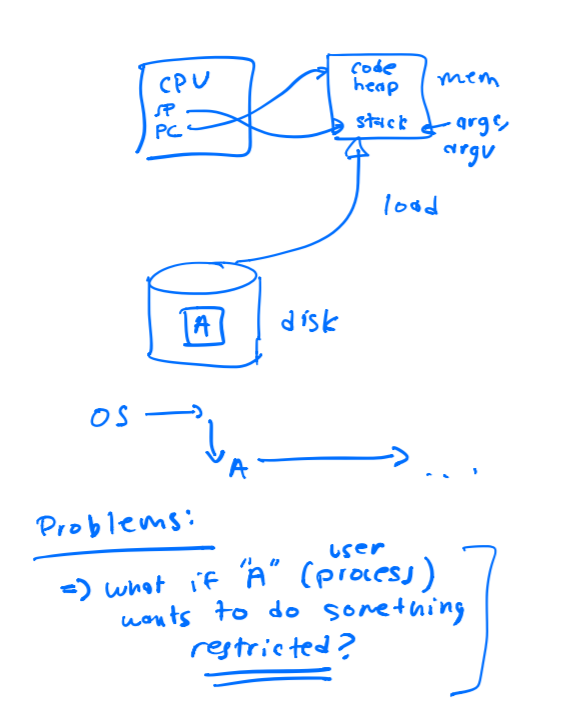 CPU
SP
PC
code
heap
stack
mem
argc,
argv
load
A
disk
OS
A ....
Problems:
=> what if "A" (user process)
wants to do something
restricted?